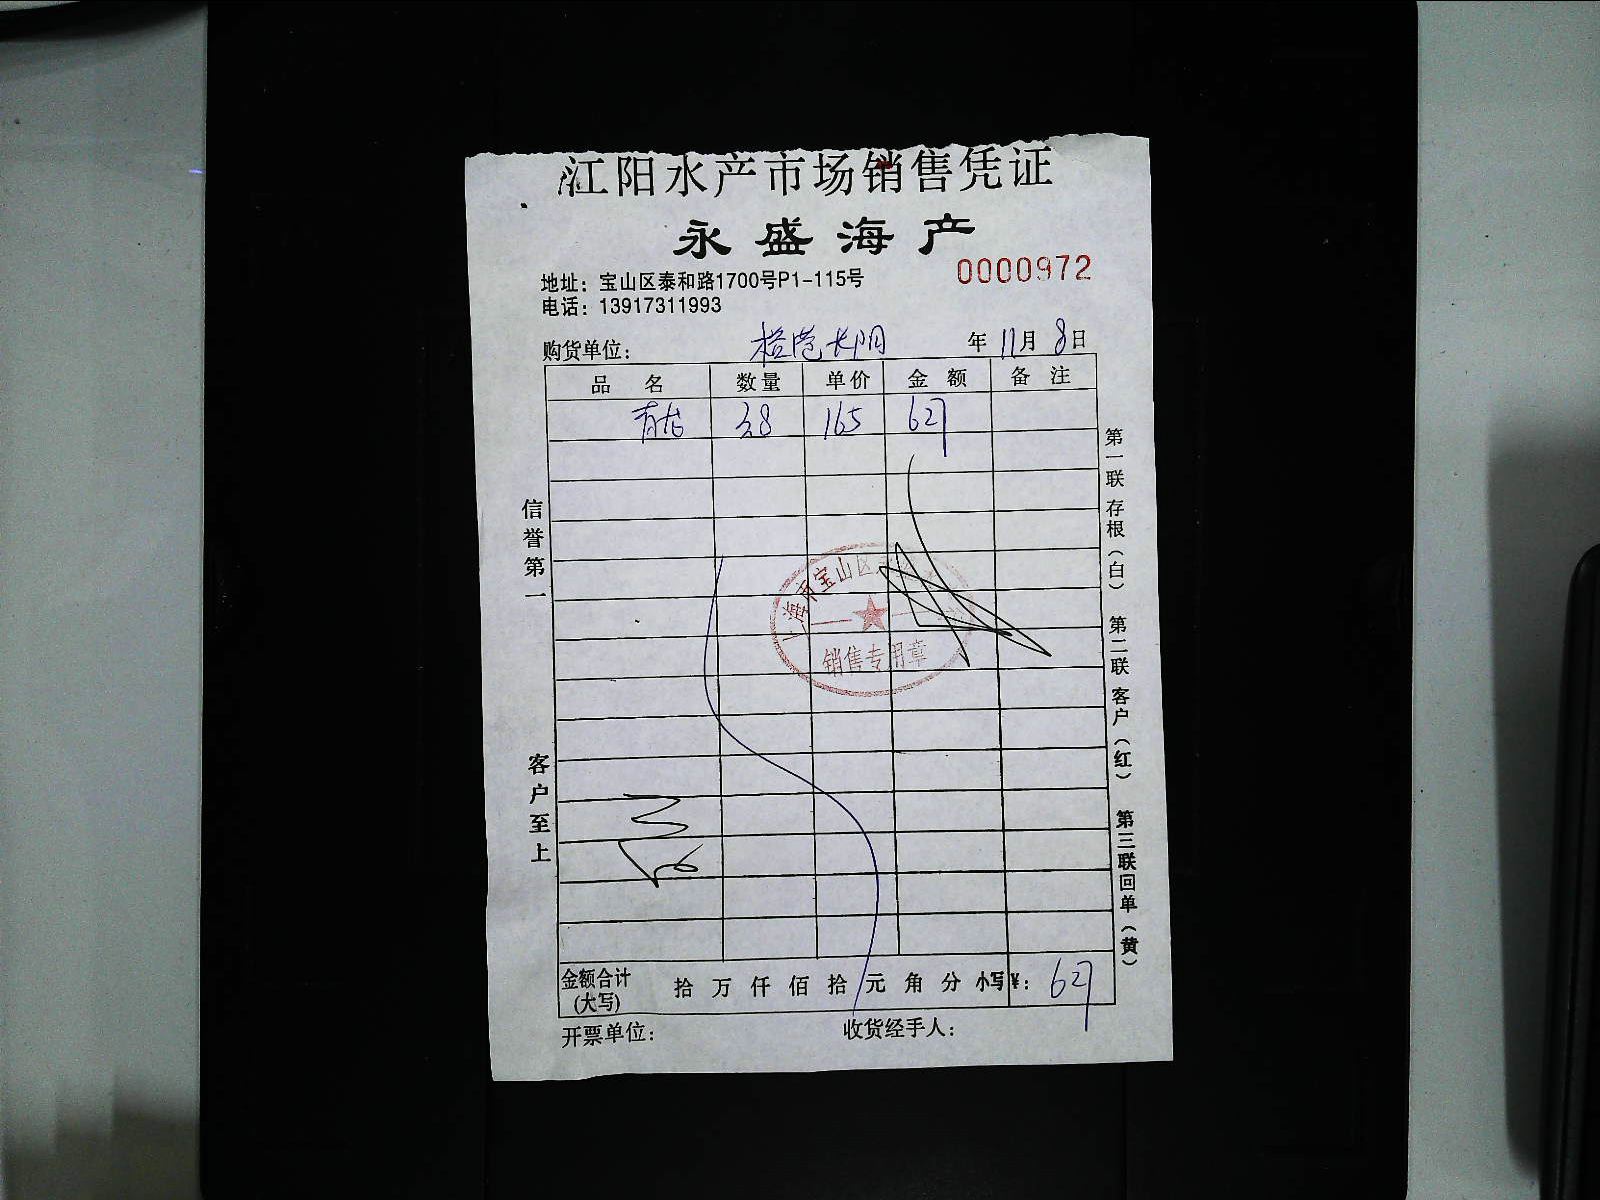 江阳水产市场销售凭证
永盛海产
0000972
地址：宝山区泰和路1700号P1-115号
电话：13917311993
购货单位： 长阴 年 11月 8日
品 名 数量 单价 金 额 备 注
青龙 3.8 165 627
信誉第一
客户至上
上海市宝山区
销售专用章
第一联 存根（白） 第二联 客户（红） 第三联 回单（黄）
金额合计(大写) 拾 万 仟 佰 拾 元 角 分 小写¥： 627
开票单位： 收货经手人：